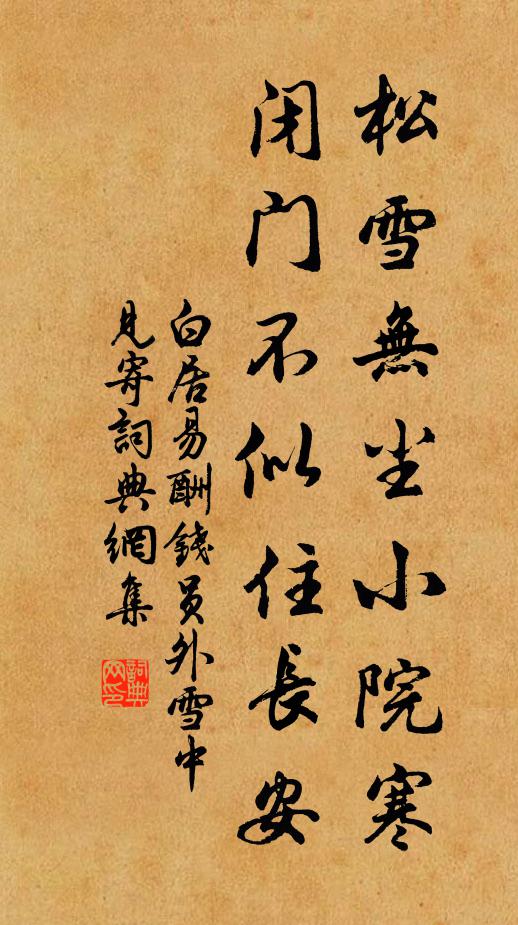 松雪無尘小院寒
闭门不似住長安
白居易酬錢员外雪中
見寄詞典網集
詞典网印